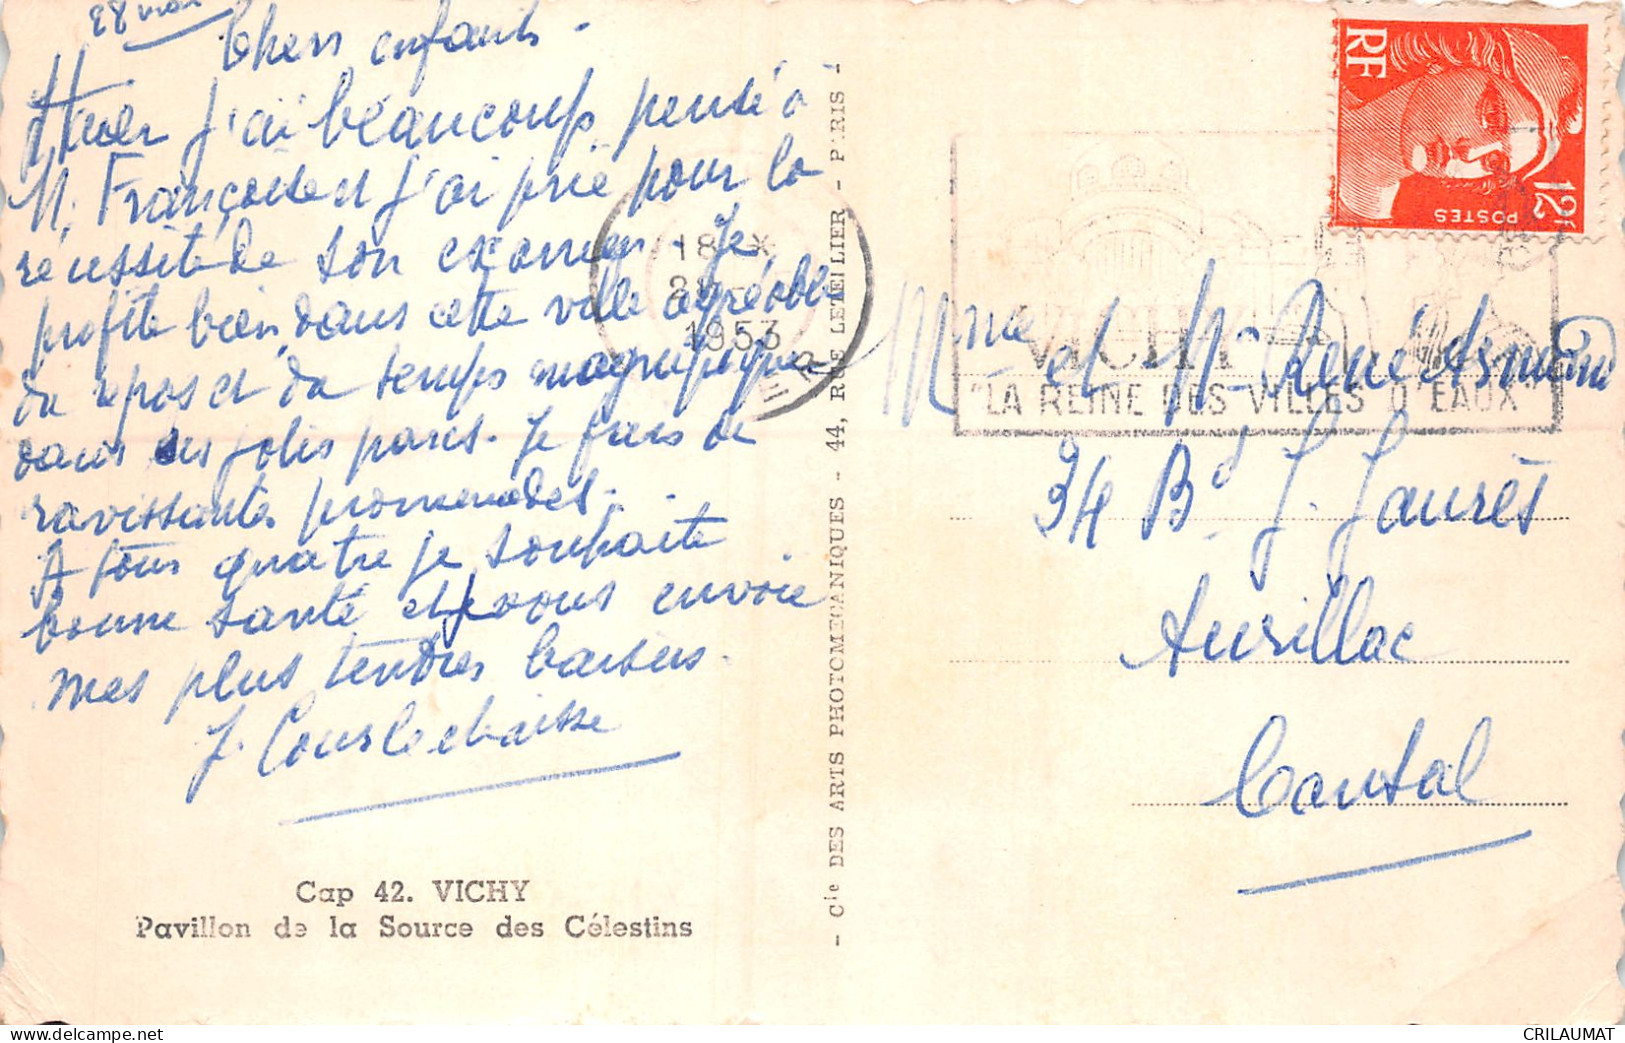 28 mai
Chers enfants -
Hier j'ai beaucoup pensé à
M. Françoise et j'ai prié pour la
réussite de son examen. Je
profite bien dans cette ville agréable
du repos et du temps magnifique
dans ses jolis parcs. Je fais de
ravissantes promenades.
A tous quatre je souhaite
bonne santé et vous envoie
mes plus tendres baisers.
J.
Cap 42. VICHY
Pavillon de la Source des Célestins
- Cie DES ARTS PHOTOMECANIQUES - 44, RUE LETELLIER - PARIS -
18 H
28
1953
RF
POSTES
12F
VICHY
"LA REINE DES VILLES D'EAUX"
Mme et Mr René
34 Bd J. Jaurès
Aurillac
Cantal
CRILAUMAT